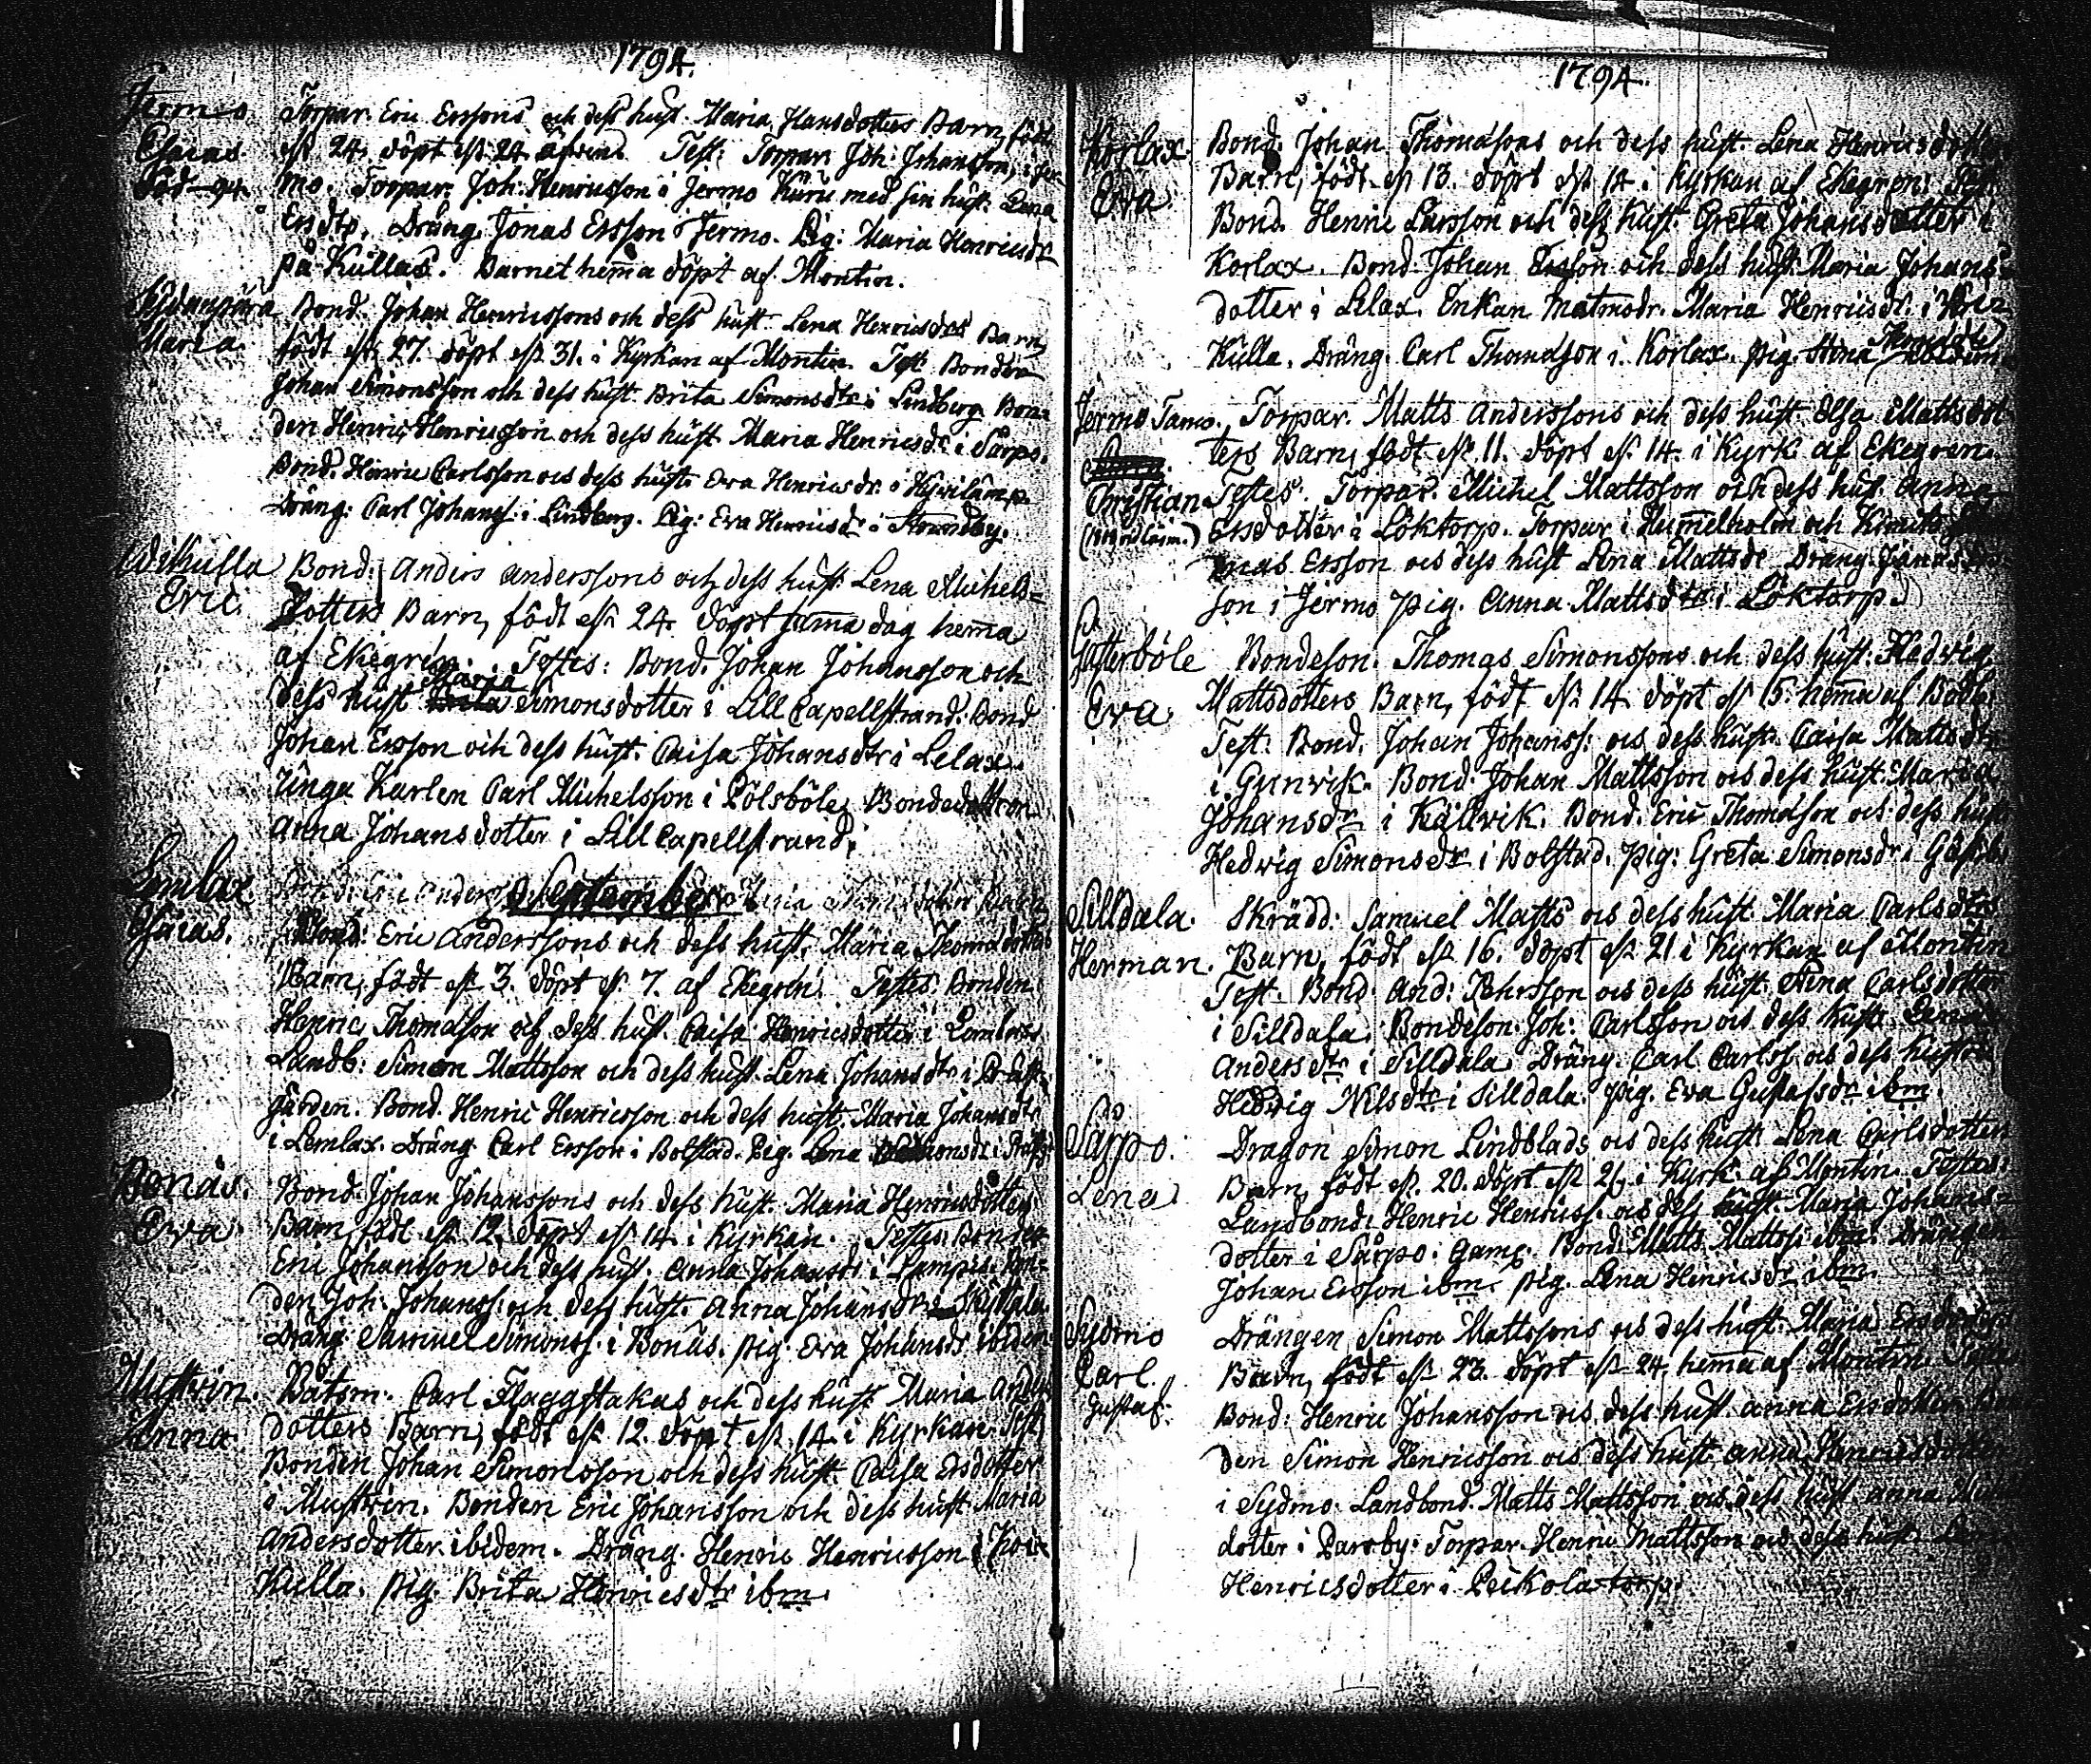 1794.
Jermo Torpar. Eric Erssons och dess hust. Maria Hansdotters Barn, födt
Esaias d. 24. döpt d. 24. Test: Torparn Joh: Johansson, i Jer-
mo. Torpar. Joh: Henricsson i Jermo med sin hust. Lena
Ersdtr. Dräng. Jonas Ersson i Jermo. Pig: Maria Henricsdr
på Kullas. Barnet hemma döpt af Montin.
Bond. Johan Henricssons och dess hust. Lena Henricsdrs Barn,
Maria. födt d. 27. döpt d. 31. i Kyrkan af Montin. Test: Bonden
Johan Simonsson och dess hust. Brita Simonsdtr i Lindberg. Bon-
den Henric Henricsson och dess hust. Maria Henricsdr i Särpo.
Bond. Henric Carlsson ocs dess hust. Eva Henricsdr. i
Dräng: Carl Johans: i Lindberg. Pig: Eva Henricsdr i Strandby.
Wikulla Bond: Anders Anderssons och dess hust. Lena Michels-
Eric. dotters Barn, födt d. 24. döpt samma dag hemma
af Ekegrén. Testes: Bond. Johan Johansson och
dess hust. Maria Simonsdotter i Lill Capellstrand. Bond
Johan Ersson och dess hust. Caisa Johansdtr i Lelax.
unga Karlen Carl Michelsson i Pölsböle, Bondedottren
Anna Johansdotter i Lill Capellstrand.
September
Lemlax
Esaias. Bond: Eric Anderssons och dess hust. Maria Thomædotters
Barn, födt d. 3. döpt d. 7. af Ekegrén. Testes: Bonden
Henric Thomasson och dess hust. Caisa Henricsdotter i Lemlax.
Landb: Simon Mattsson och dess hust. Lena Johansdtr i Präst-
gården. Bond. Henric Henricsson och dess hust. Maria Johansdtr
i Lemlax. Dräng. Carl Ersson i Bolstad. Pig. Lena
Bonäs. Bond. Johan Johanssons och dess hust. Maria Henricsdotters
Eva. Barn, födt d. 12. döpt d. 14. i Kyrkan. Testes: Bonden
Eric Johansson och dess hust. Anna Johansdr i Lampis. Bon-
den Joh: Johanss: och dess hust. Anna Johansdr i
Dräng. Samuel Simonss: i Bonäs. pig. Eva Johansdr ibidem.
Mustfin. Båtsm: Carl Flaggstakas och dess hust Maria Anders
Anna. dotters Barn, födt d. 12. döpt d. 14. i Kyrkan. Test:
Bonden Johan Simonsson och dess hust. Caisa Ersdotter
i Mustfin. Bonden Eric Johansson och dess hust. Maria
Andersdotter ibidem. Dräng. Henric Henricsson i
Kulla. pig. Brita Henricsdtr ibm.
1794.
Korlax. Bond. Johan Thomassons och dess hust. Lena Henricsdotters
Eva. Barn, födt d. 13. döpt d. 14. i Kyrkan af Ekegren: Test:
Bond. Henric Larsson och dess hust. Greta Johansdotter i
Korlax. Bond. Johan Ersson och dess hust. Maria Johans-
dotter i Lelax. Enkan Maria Henricsdr. i
Kulla. Dräng. Carl Thomasson i Korlax. pig. Stina Thomædtr ibidem
Jermo Tamo. Torpar. Matts Anderssons och dess hust. Elsa Mattsdot
Christian ters Barn, födt d. 11. döpt d. 14. i Kyrk. af Ekegren.
Testes: Torpar. Michel Mattsson och dess hus. Anna
Ersdotter i Löktorp. Torpar i Hummelholm och
Ersson ocs dess hust Lena Mattsdr. Dräng. Jonas
son i Jermo pig. Anna Mattsdtr i Löktorp.
Gesterböle Bondeson. Thomas Simonssons och dess hust: Hedvig
Eva. Mattsdotters Barn, födt d. 14. döpt d. 15. hemma af
Test. Bond. Johan Johanss: ocs dess hust. Caisa Mattsdtr
i Gunvik. Bond: Johan Mattsson ocs dess hust. Maria
Johansdr i Källvik. Bond. Eric Thomasson och dess hust
Hedvig Simonsdr i Bolstad. pig: Greta Simonsdr i
Silldala. Skrädd: Samuel Matts ocs dess hust Maria Carlsdtrs
Herman. Barn, födt d. 16. döpt d. 21 i Kyrkan af Montin
Test. Bond. And: Pehrsson ocs dess hust. Stina Carlsdotter
i Silldala. Bondeson: Joh: Carlsson ocs dess hust. Lena
Andersdtr i Silldala. Dräng. Carl Carlss. ocs dess hustru
Hedvig Nilsdtr i Silldala. pig. Eva Gustafsdr ibm.
Särpo. Dragon Simon Lindblads ocs dess hust Lena Carlsdotters
Lena Barn, födt d. 20. döpt d. 21. i Kyrk. af Montin. Testes:
Landbond. Henric Henricss: ocs dess hust. Maria Johans-
dotter i Särpo: Bond: Matts Mattss: ibm. Drängen
Johan Ersson ibm. pig. Lena Henricsdr ibm.
Sydmo Drängen Simon Mattssons ocs dess hust. Maria Ersdotters
Carl Barn, födt d. 23. döpt d. 24, hemma af Montin.
Gustaf. Bond: Henric Johansson ocs dess hust. Anna Ersdotter. Bon
den Simon Henricsson ocs dess hust. Anna Henricsdotter
i Sydmo. Landbond. Matts Mattsson ocs dess hust. Anna
dotter i Parsby. Torpar. Henric Mattsson ocs dess hust.
Henricsdotter i Peikola torp.